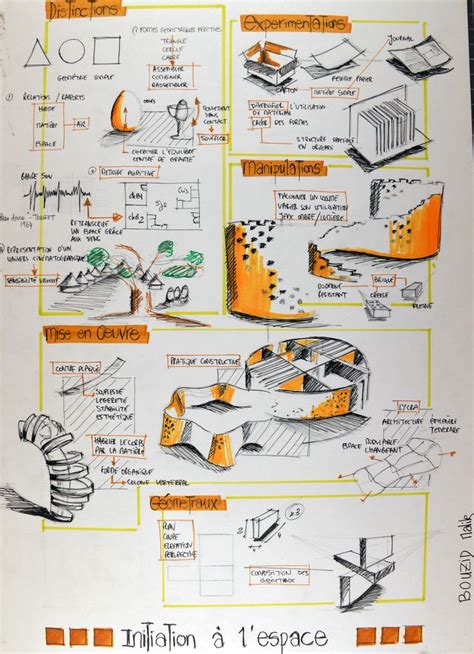 Distinctions
① Formes géométriques primitives
Triangle
Cercle
Carré
Géométrie simple
Assembler
Combiner
Rassembler
① Relations / Rapports
Homme
Matière
Air
Espace
Mouvement
sans
contact
Souffler
Chercher l'équilibre
centre de gravité
Bande son
② Retour auditive
Retranscrire
un espace grâce
aux sens
③ Représentation d'un
univers cinématographique
Sensibilité visuelle
Expérimentations
Journal
Carton
Feuille papier
Matière simple
Diversifier l'utilisation
du matériau
Créer des formes
Structure spatiale
en origami
Manipulations
Façonner un volume
Varier son utilisation
Jeux ombre/lumière
Brique
Moderne
Résistant
Creuse
Pleine
Mise en Oeuvre
Contre plaqué
Souplesse
Légèreté
Stabilité
Esthétique
Habiller le corps
par la matière
Forme organique
Colonne vertébrale
Pratique constructive
Lycra
Architecture éphémère
temporaire
Espace
modulable
changeant
Géométraux
Plan
Coupe
Élévation
Perspective
x3
2
4
Composition des
géométraux
BOUZID Malik
Initiation à l'espace